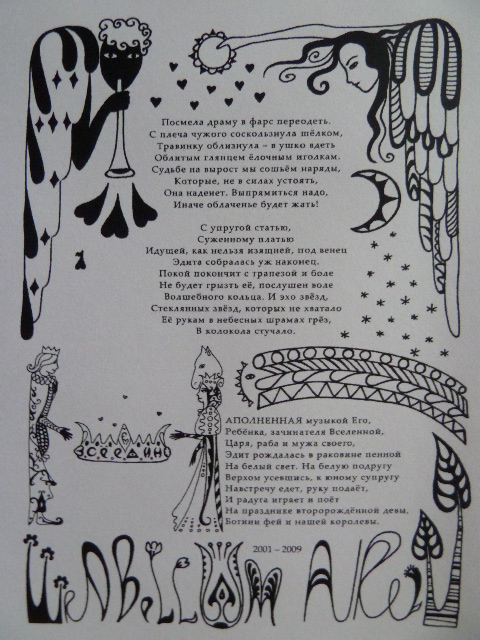 Посмела драму в фарс переодеть.
С плеча чужого соскользнула шёлком,
Травинку облизнула – в ушко вдеть
Облитым глянцем ёлочным иголкам.
Судьбе на вырост мы сошьём наряды,
Которые, не в силах устоять,
Она наденет. Выпрямиться надо,
Иначе облаченье будет жать!
С упругой статью,
Суженному платью
Идущей, как нельзя изящней, под венец
Эдита собралась уж наконец.
Покой покончит с трапезой и боле
Не будет грызть её, послушен воле
Волшебного кольца. И эхо звёзд,
Стеклянных звёзд, которых не хватало
Её рукам в небесных шрамах грёз,
В колокола стучало.
АПОЛНЕННАЯ музыкой Его,
Ребёнка, зачинателя Вселенной,
Царя, раба и мужа своего,
Эдит рождалась в раковине пенной
На белый свет. На белую подругу
Верхом усевшись, к юному супругу
Навстречу едет, руку подаёт,
И радуга играет и поёт
На празднике второрождённой девы,
Богини фей и нашей королевы.
2001 – 2009